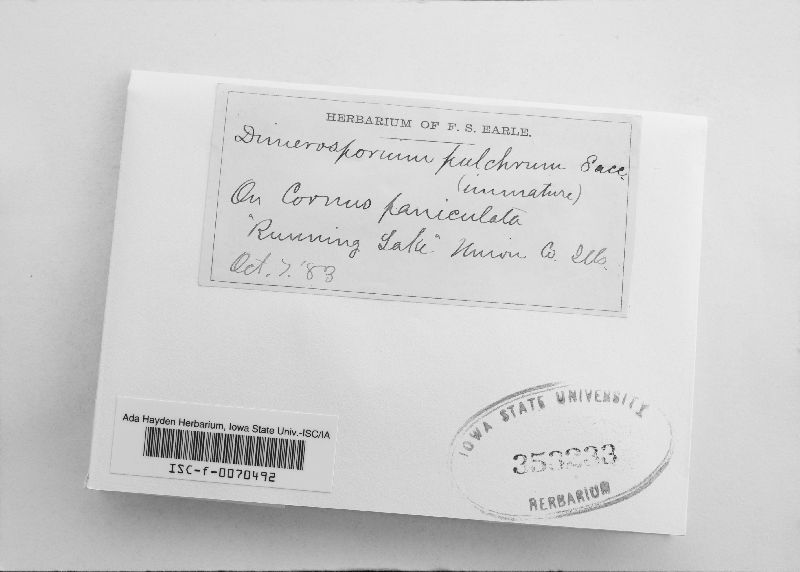 HERBARIUM OF F. S. EARLE.
Dimerosporium pulchrum Sacc.
(immature)
On Cornus paniculata
"Running Lake" Union Co. Ills.
Oct. 7. '83
Ada Hayden Herbarium, Iowa State Univ.-ISC/IA
ISC-f-0070492
IOWA STATE UNIVERSITY
353233
HERBARIUM